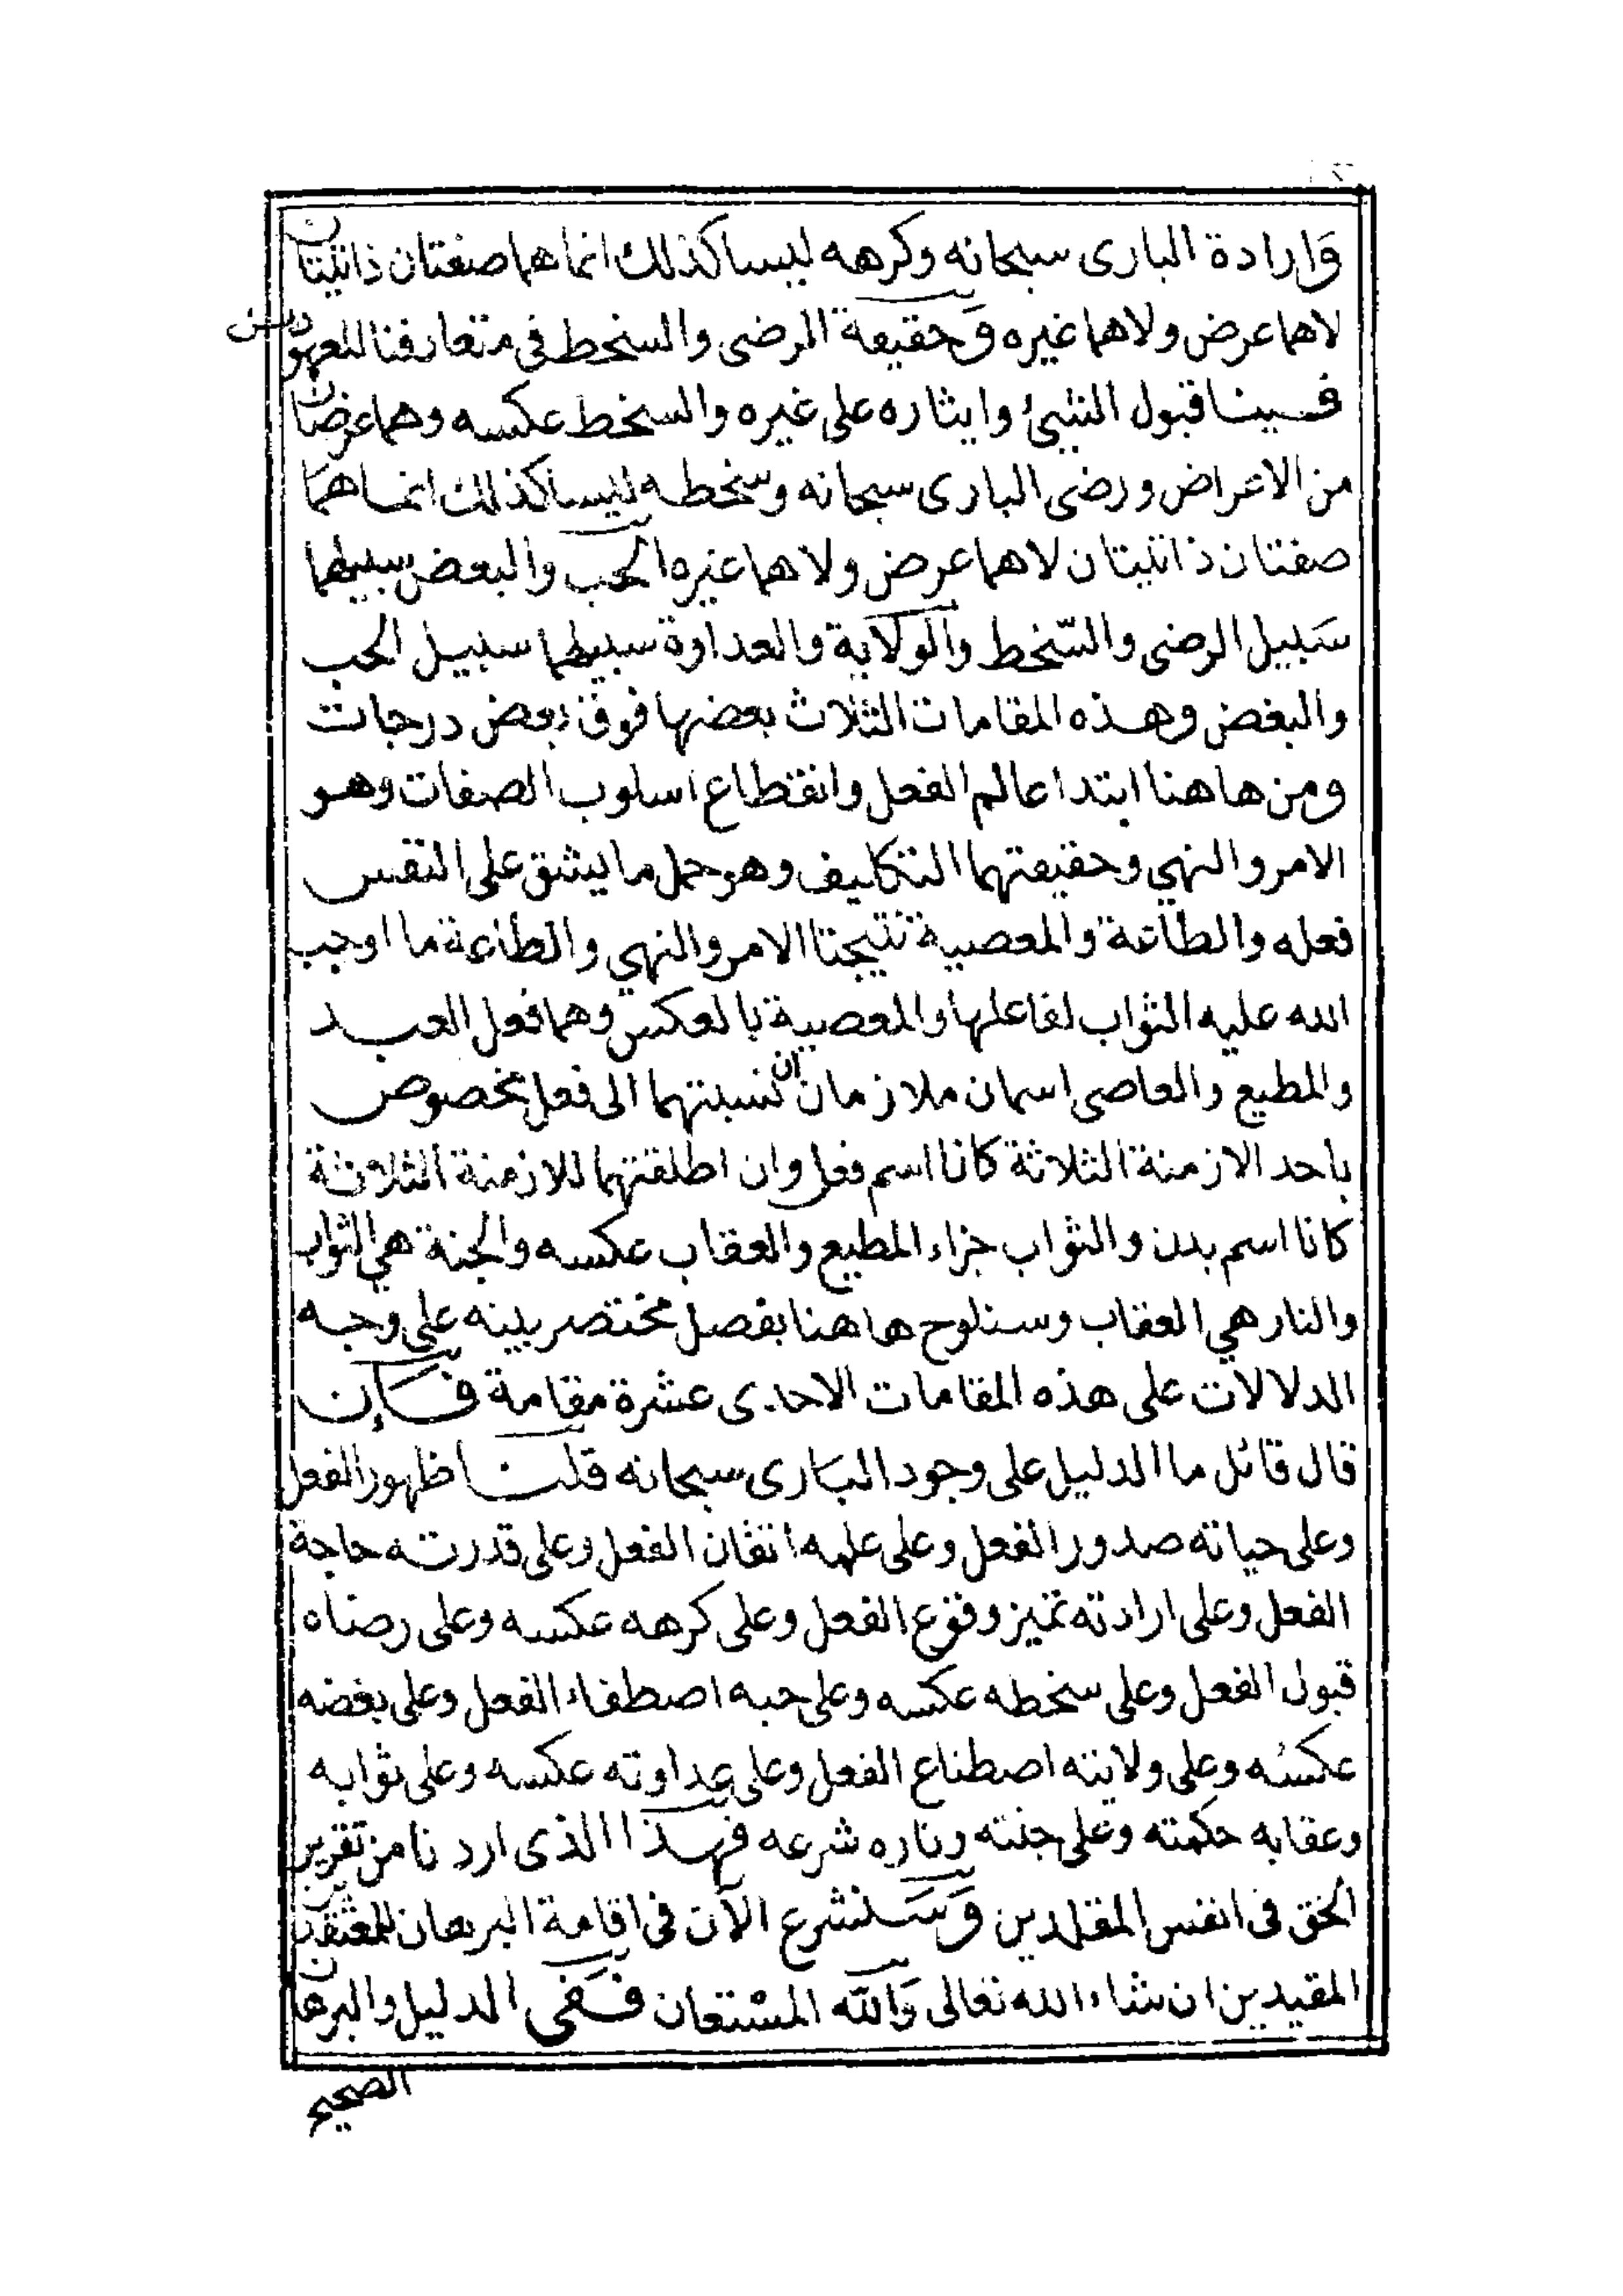 وارادة البارى سبحانه وكرهه ليسا كذلك انما هما صفتان ذاتيتان
لاهما عرض ولاهما غيره وحقيقة الرضى والسخط فى متعارفنا المعهودين
فينا قبول الشيئ وايثاره على غيره والسخط عكسه وهما عرضان
من الاعراض ورضى البارى سبحانه وسخطه ليسا كذلك انما هما
صفتان ذاتيتان لاهما عرض ولاهما غيره الحب والبغض سبيلهما
سبيل الرضى والسّخط والولاية والعداوة سبيلهما سبيل الحب
والبغض وهذه المقامات الثلاث بعضها فوق بعض درجات
ومن هاهنا ابتدا عالم الفعل وانقطاع اسلوب الصفات وهو
الامر والنهي وحقيقتهما التكليف وهو حمل ما يشق على النفس
فعله والطاعة والمعصية نتيجتا الامر والنهي والطاعة ما اوجب
الله عليه الثواب لفاعلها والمعصية بالعكس وهما فعل العبد
والمطيع والعاصى اسمان ملازمان ان نسبتهما الى فعل مخصوص
باحد الازمنة الثلاثة كانا اسم فعل وان اطلقتهما للازمنة الثلاثة
كانا اسم بدن والثواب جزاء المطيع والعقاب عكسه والجنة هي الثواب
والنار هي العقاب وسنلوح هاهنا بفصل مختصر يبينه على وجه
الدلالات على هذه المقامات الاحدى عشرة مقامة فَإن
قال قائل ما الدليل على وجود البارى سبحانه قلنا ظهور الفعل
وعلى حياته صدور الفعل وعلى علمه اتقان الفعل وعلى قدرته حاجة
الفعل وعلى ارادته تميز وقوع الفعل وعلى كرهه عكسه وعلى رضاه
قبول الفعل وعلى سخطه عكسه وعلى حبه اصطفاء الفعل وعلى بغضه
عكسه وعلى ولايته اصطناع الفعل وعلى عداوته عكسه وعلى ثوابه
وعقابه حكمته وعلى جنته وناره شرعه فهذا الذى اردنا من تقرير
الحق فى انفس المقلدين وَسَنشرع الآن فى اقامة البرهان للمعتقدين
المقيدين ان شاء الله تعالى وَالله المسْتعان فَفى الدليل والبرهان
الصحيح